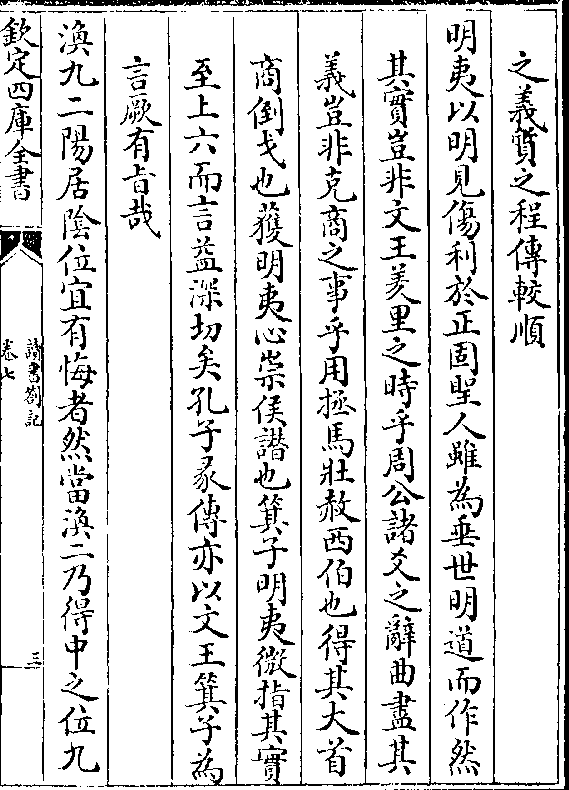 之義質之程傳較順
明夷以明見傷利於正固聖人雖為垂世明道而作然
其實豈非文王羑里之時乎周公諸爻之辭曲盡其
義豈非克商之事乎用拯馬壯赦西伯也得其大首
商倒戈也獲明夷心崇侯譖也箕子明夷微指其實
至上六而言益深切矣孔子彖傳亦以文王箕子為
言厥有旨哉
渙九二陽居陰位宜有悔者然當渙二乃得中之位九
欽定四庫全書
讀書劄記
卷七
三